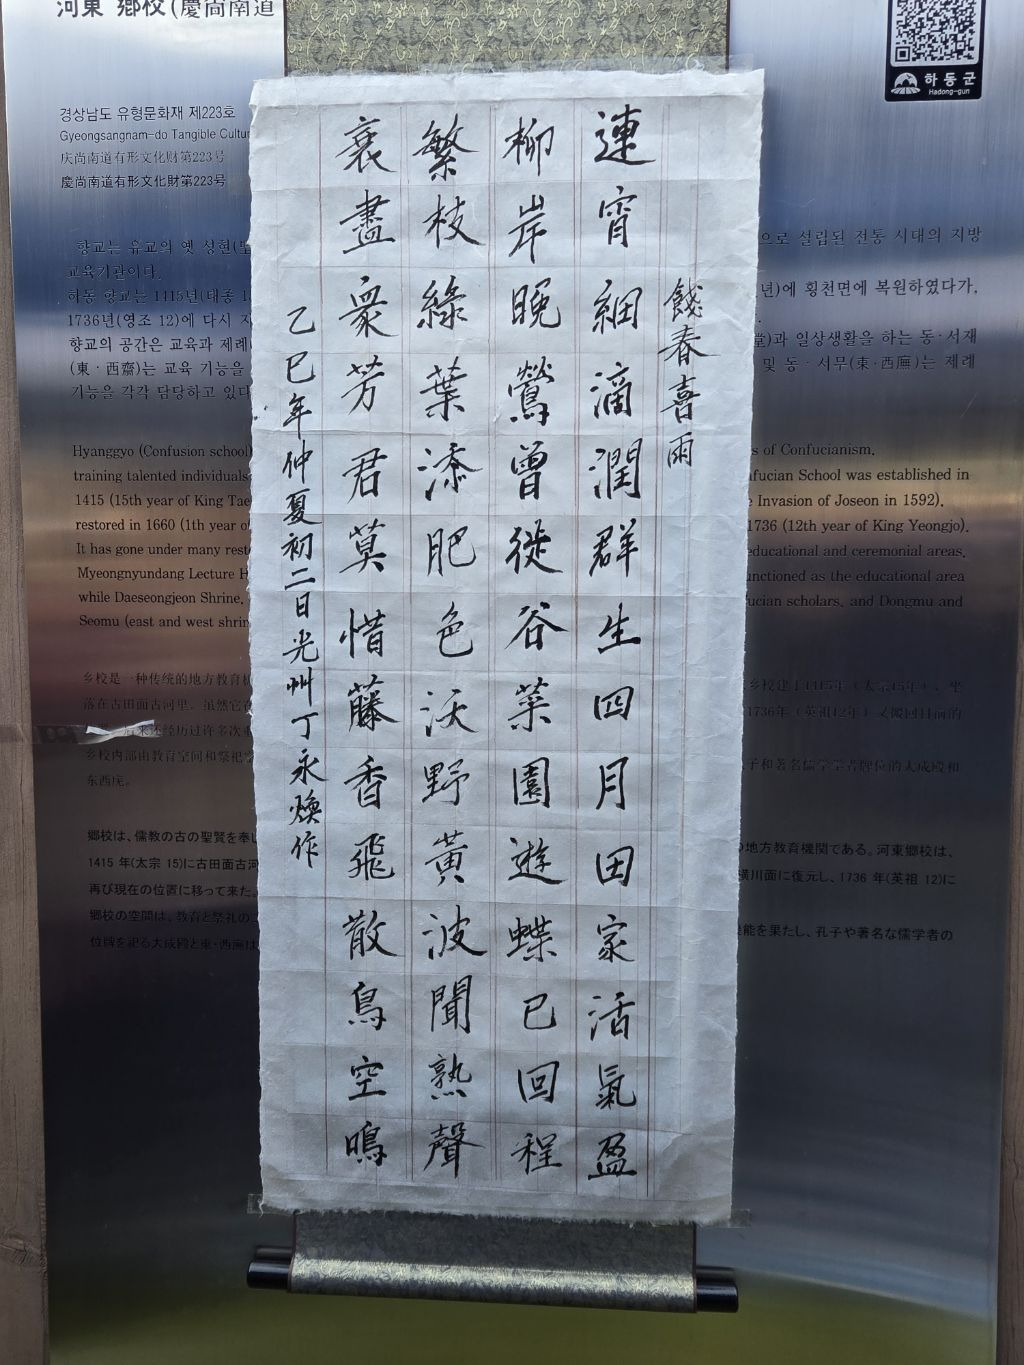 河東 鄕校(慶尙南道
하동군
Hadong-gun
경상남도 유형문화재 제223호
Gyeongsangnam-do Tangible Cultu
庆尚南道有形文化财第223号
慶尚南道有形文化財第223号
餞春喜雨
連宵細滴潤群生四月田家活氣盈
柳岸晩鶯曾徙谷菜園遊蝶已回程
繁枝綠葉添肥色沃野黃波聞熟聲
衰盡衆芳君莫惜藤香飛散鳥空鳴
乙巳年仲夏初二日光州丁永煥作
향교는 유교의 옛 성현(
으로 설립된 전통 시대의 지방
교육기관이다.
하동 향교는 1415년(태종 1
년)에 횡천면에 복원하였다가,
1736년(영조 12)에 다시 지
향교의 공간은 교육과 제례
)과 일상생활을 하는 동·서재
(東·西齋)는 교육 기능을
및 동·서무(東·西廡)는 제례
기능을 각각 담당하고 있다
Hyanggyo (Confusion school)
s of Confucianism.
training talented individuals
nfucian School was established in
1415 (15th year of King Tae
e Invasion of Joseon in 1592).
restored in 1660 (1th year o
1736 (12th year of King Yeongjo).
It has gone under many rest
educational and ceremonial areas.
Myeongnyundang Lecture H
unctioned as the educational area
while Daeseongjeon Shrine,
ucian scholars, and Dongmu and
Seomu (east and west shrin
乡校是一种传统的地方教育机
落在古田面古河里。虽然它
乡校内部由教育空间和祭祀
子和著名儒学学者牌位的大成殿和
东西庑。
郷校は、儒教の古の聖賢を奉
の地方教育機関である。河東郷校は、
1415 年(太宗 15)に古田面古河
横川面に復元し、1736 年(英祖 12)に
再び現在の位置に移って来た。
郷校の空間は、教育と祭礼の
能を果たし、孔子や著名な儒学者の
位牌を祀る大成殿と東·西廡は